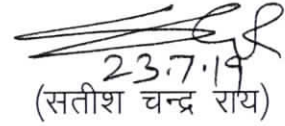 23.7.19
(सतीश चन्द्र राय)